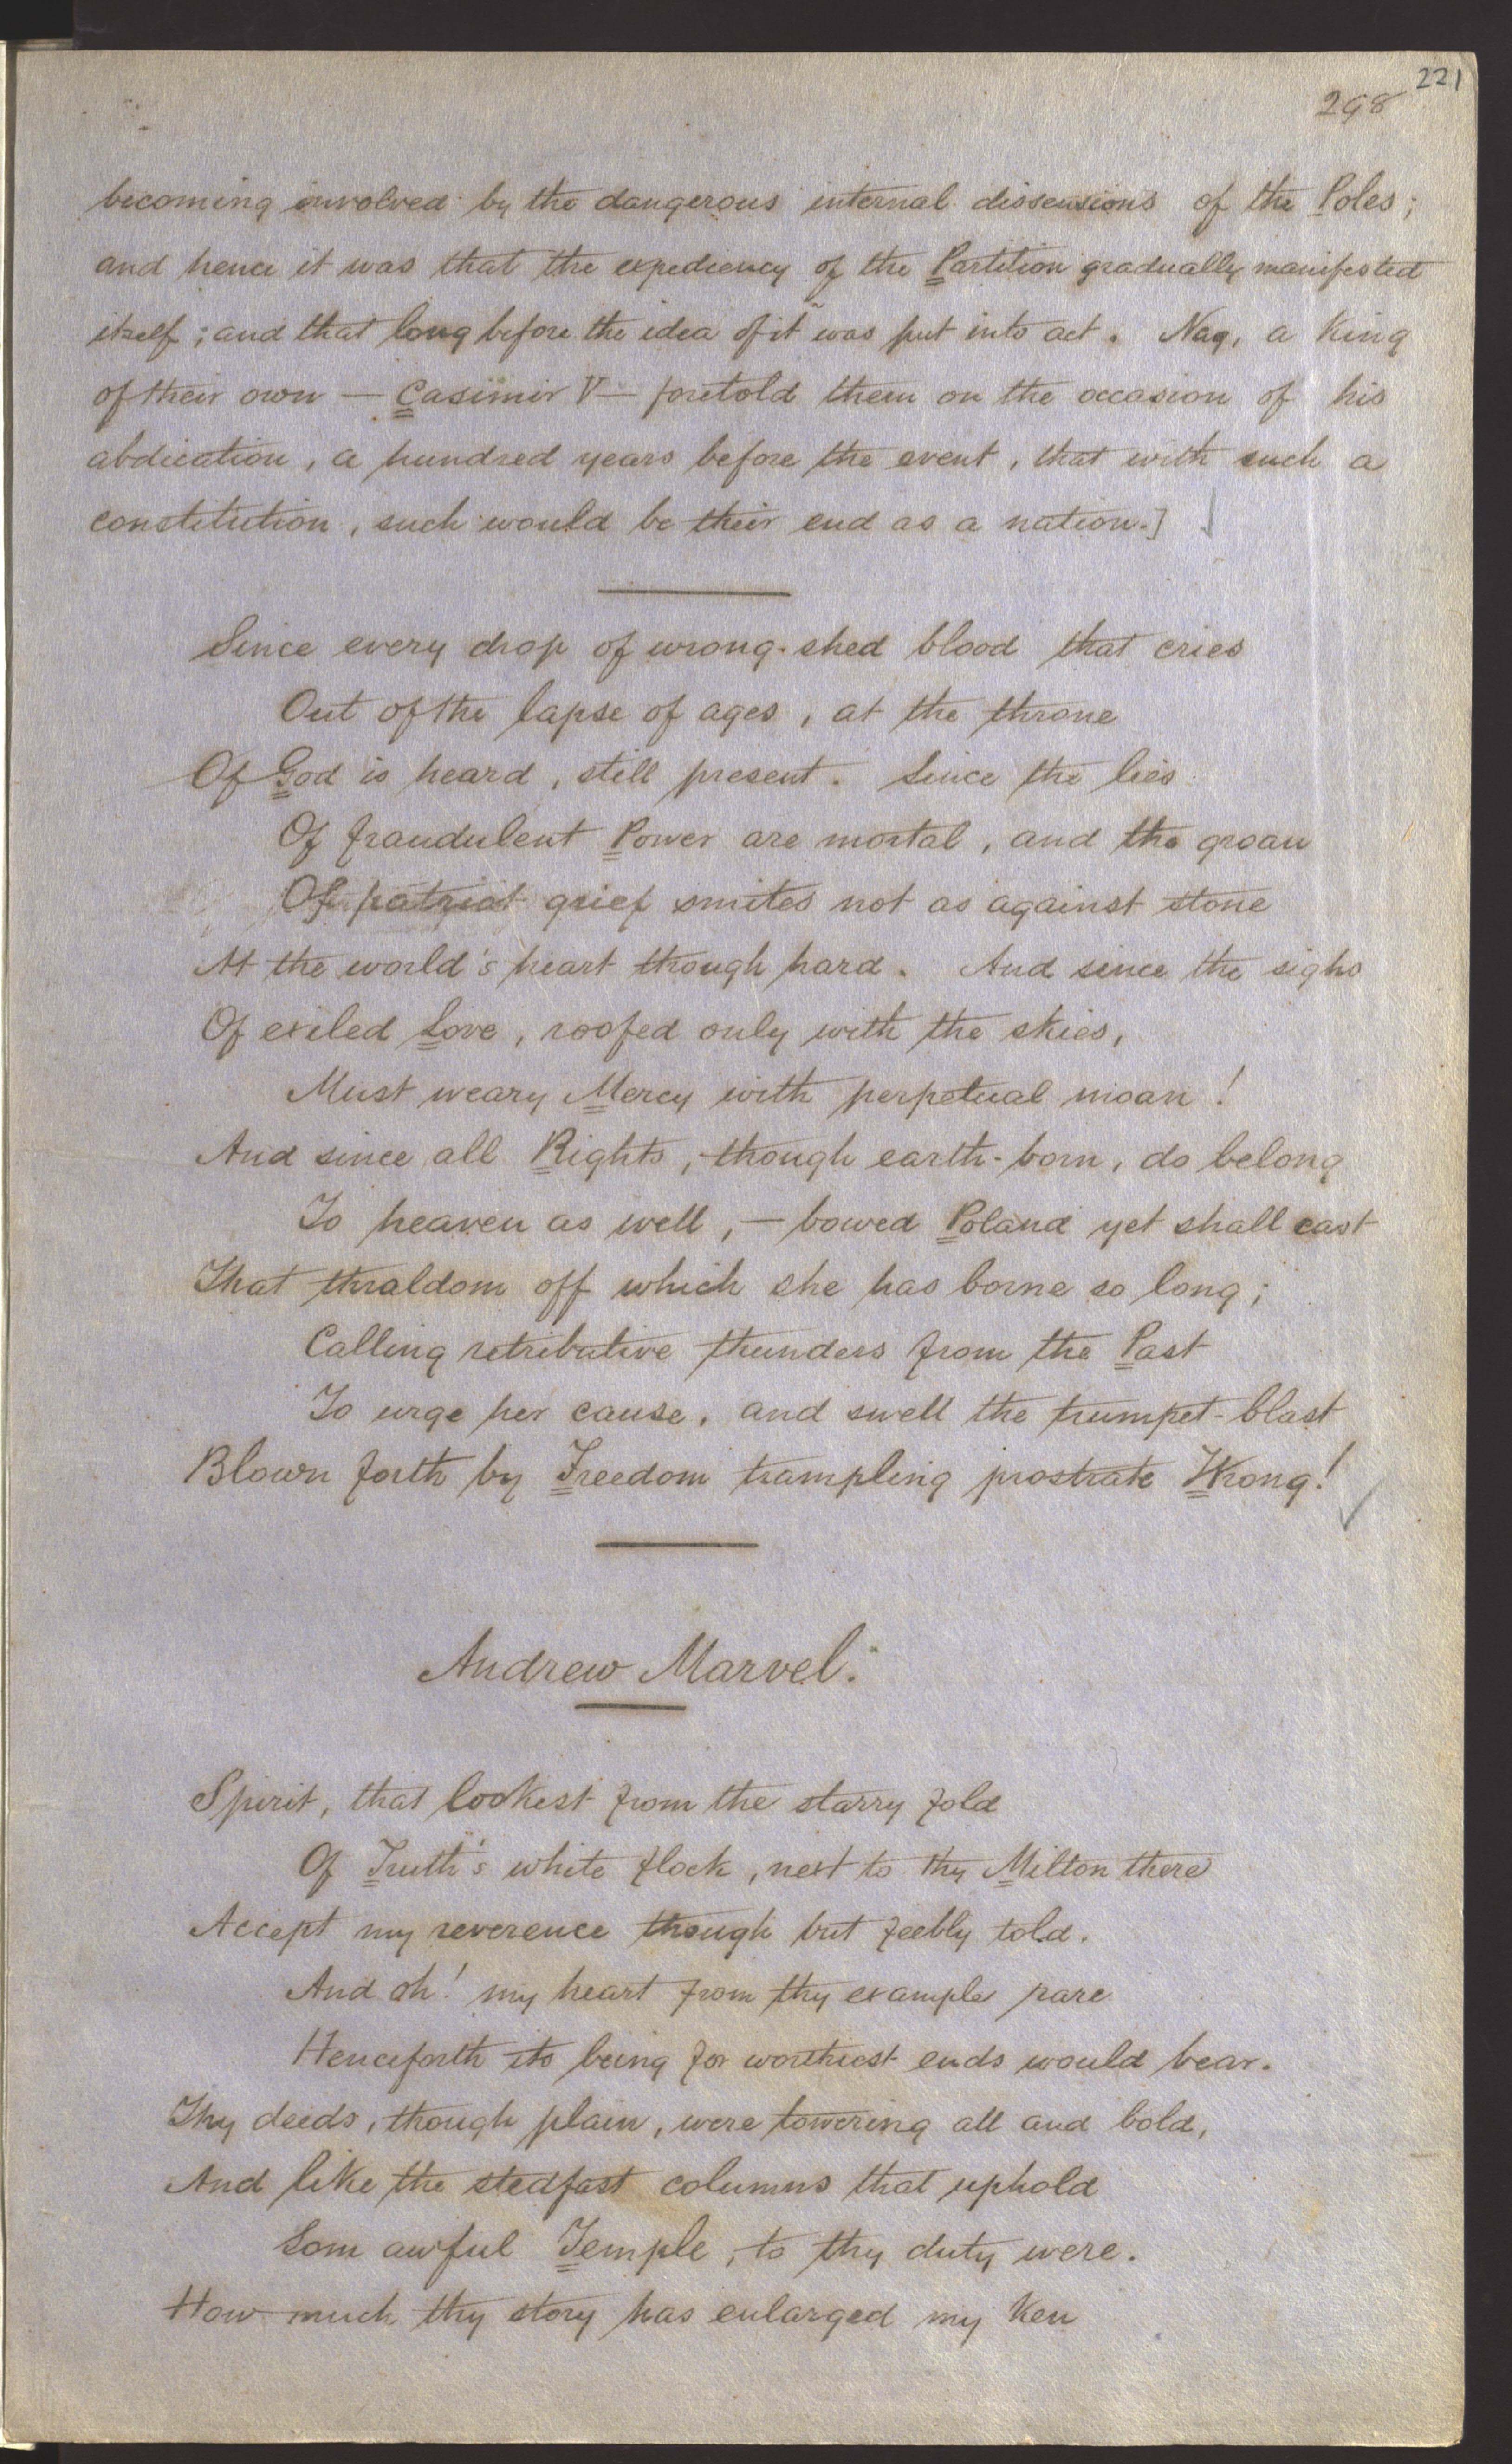 221
298
becoming involved by the dangerous internal dissensions of the Poles;
and hence it was that the expediency of the Partition gradually manifested
itself; and that long before the idea of it was put into act. Nay, a King
of their own — Casimir V — foretold them on the occasion of his
abdication, a hundred years before the event, that with such a
constitution, such would be their end as a nation.]
Since every drop of wrong-shed blood that cries
Out of the lapse of ages, at the throne
Of God is heard, still present. Since the lies
Of fraudulent Power are mortal, and the groan
Of patriot grief smites not as against stone
At the world's heart though hard. And since the sighs
Of exiled Love, roofed only with the skies,
Must weary Mercy with perpetual moan!
And since all Rights, though earth-born, do belong
To heaven as well, — bowed Poland yet shall cast
That thraldom off which she has borne so long;
Calling retributive thunders from the Past
To urge her cause, and swell the trumpet-blast
Blown forth by Freedom trampling prostrate Wrong!
Andrew Marvel.
Spirit, that lookest from the starry fold
Of Truth's white flock, next to thy Milton there
Accept my reverence though but feebly told.
And oh! my heart from thy example rare
Henceforth its being for worthiest ends would bear.
Thy deeds, though plain, were towering all and bold,
And like the stedfast columns that uphold
Som awful Temple, to thy duty were.
How much thy story has enlarged my Ken